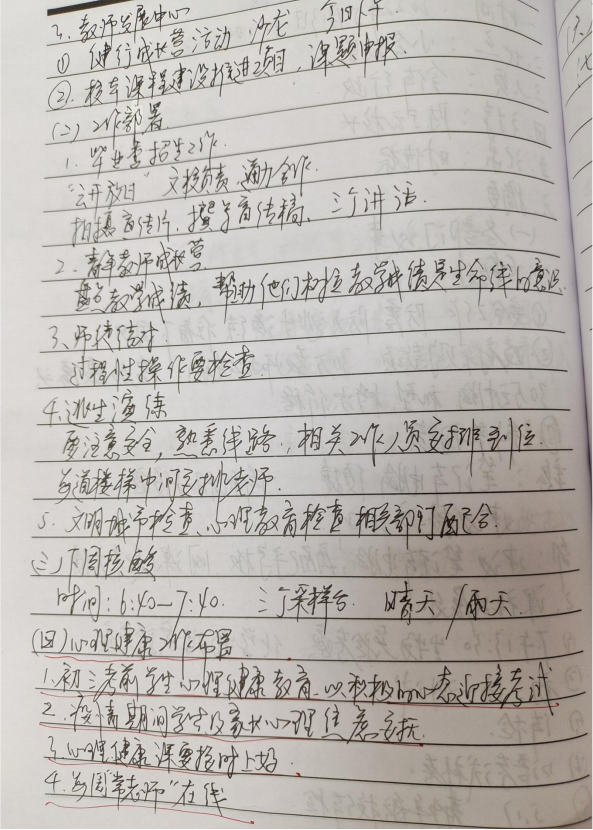 3. 教师发展中心
① 健行成长营活动 沙龙 今日下午
②. 校本课程建设推进项目, 课题申报.
(二) 工作部署
1. 毕业季招生工作.
"公开放日" 文核负责, 通力合作.
拍摄宣传片, 撰写宣传稿、三个讲话.
2. 青年教师成长营
盘点教学成绩, 帮助他们树立教学成绩是生命线的意识
3. 师徒结对
过程性操作要检查
4. 逃生演练
要注意安全, 熟悉线路, 相关工作人员安排到位.
每道楼梯中间安排老师.
5. 文明城市检查、心理教育检查 相关部门配合.
(三) 下周核酸
时间: 6:40—7:40. 三个采样台. 晴天/雨天.
(四) 心理健康工作布署
1. 初三考前学生心理健康教育, 以积极的心态迎接考试
2. 疫情期间学生及家长心理焦虑安抚.
3. 心理健康课要按时上好.
4. 每周"常老师"在线